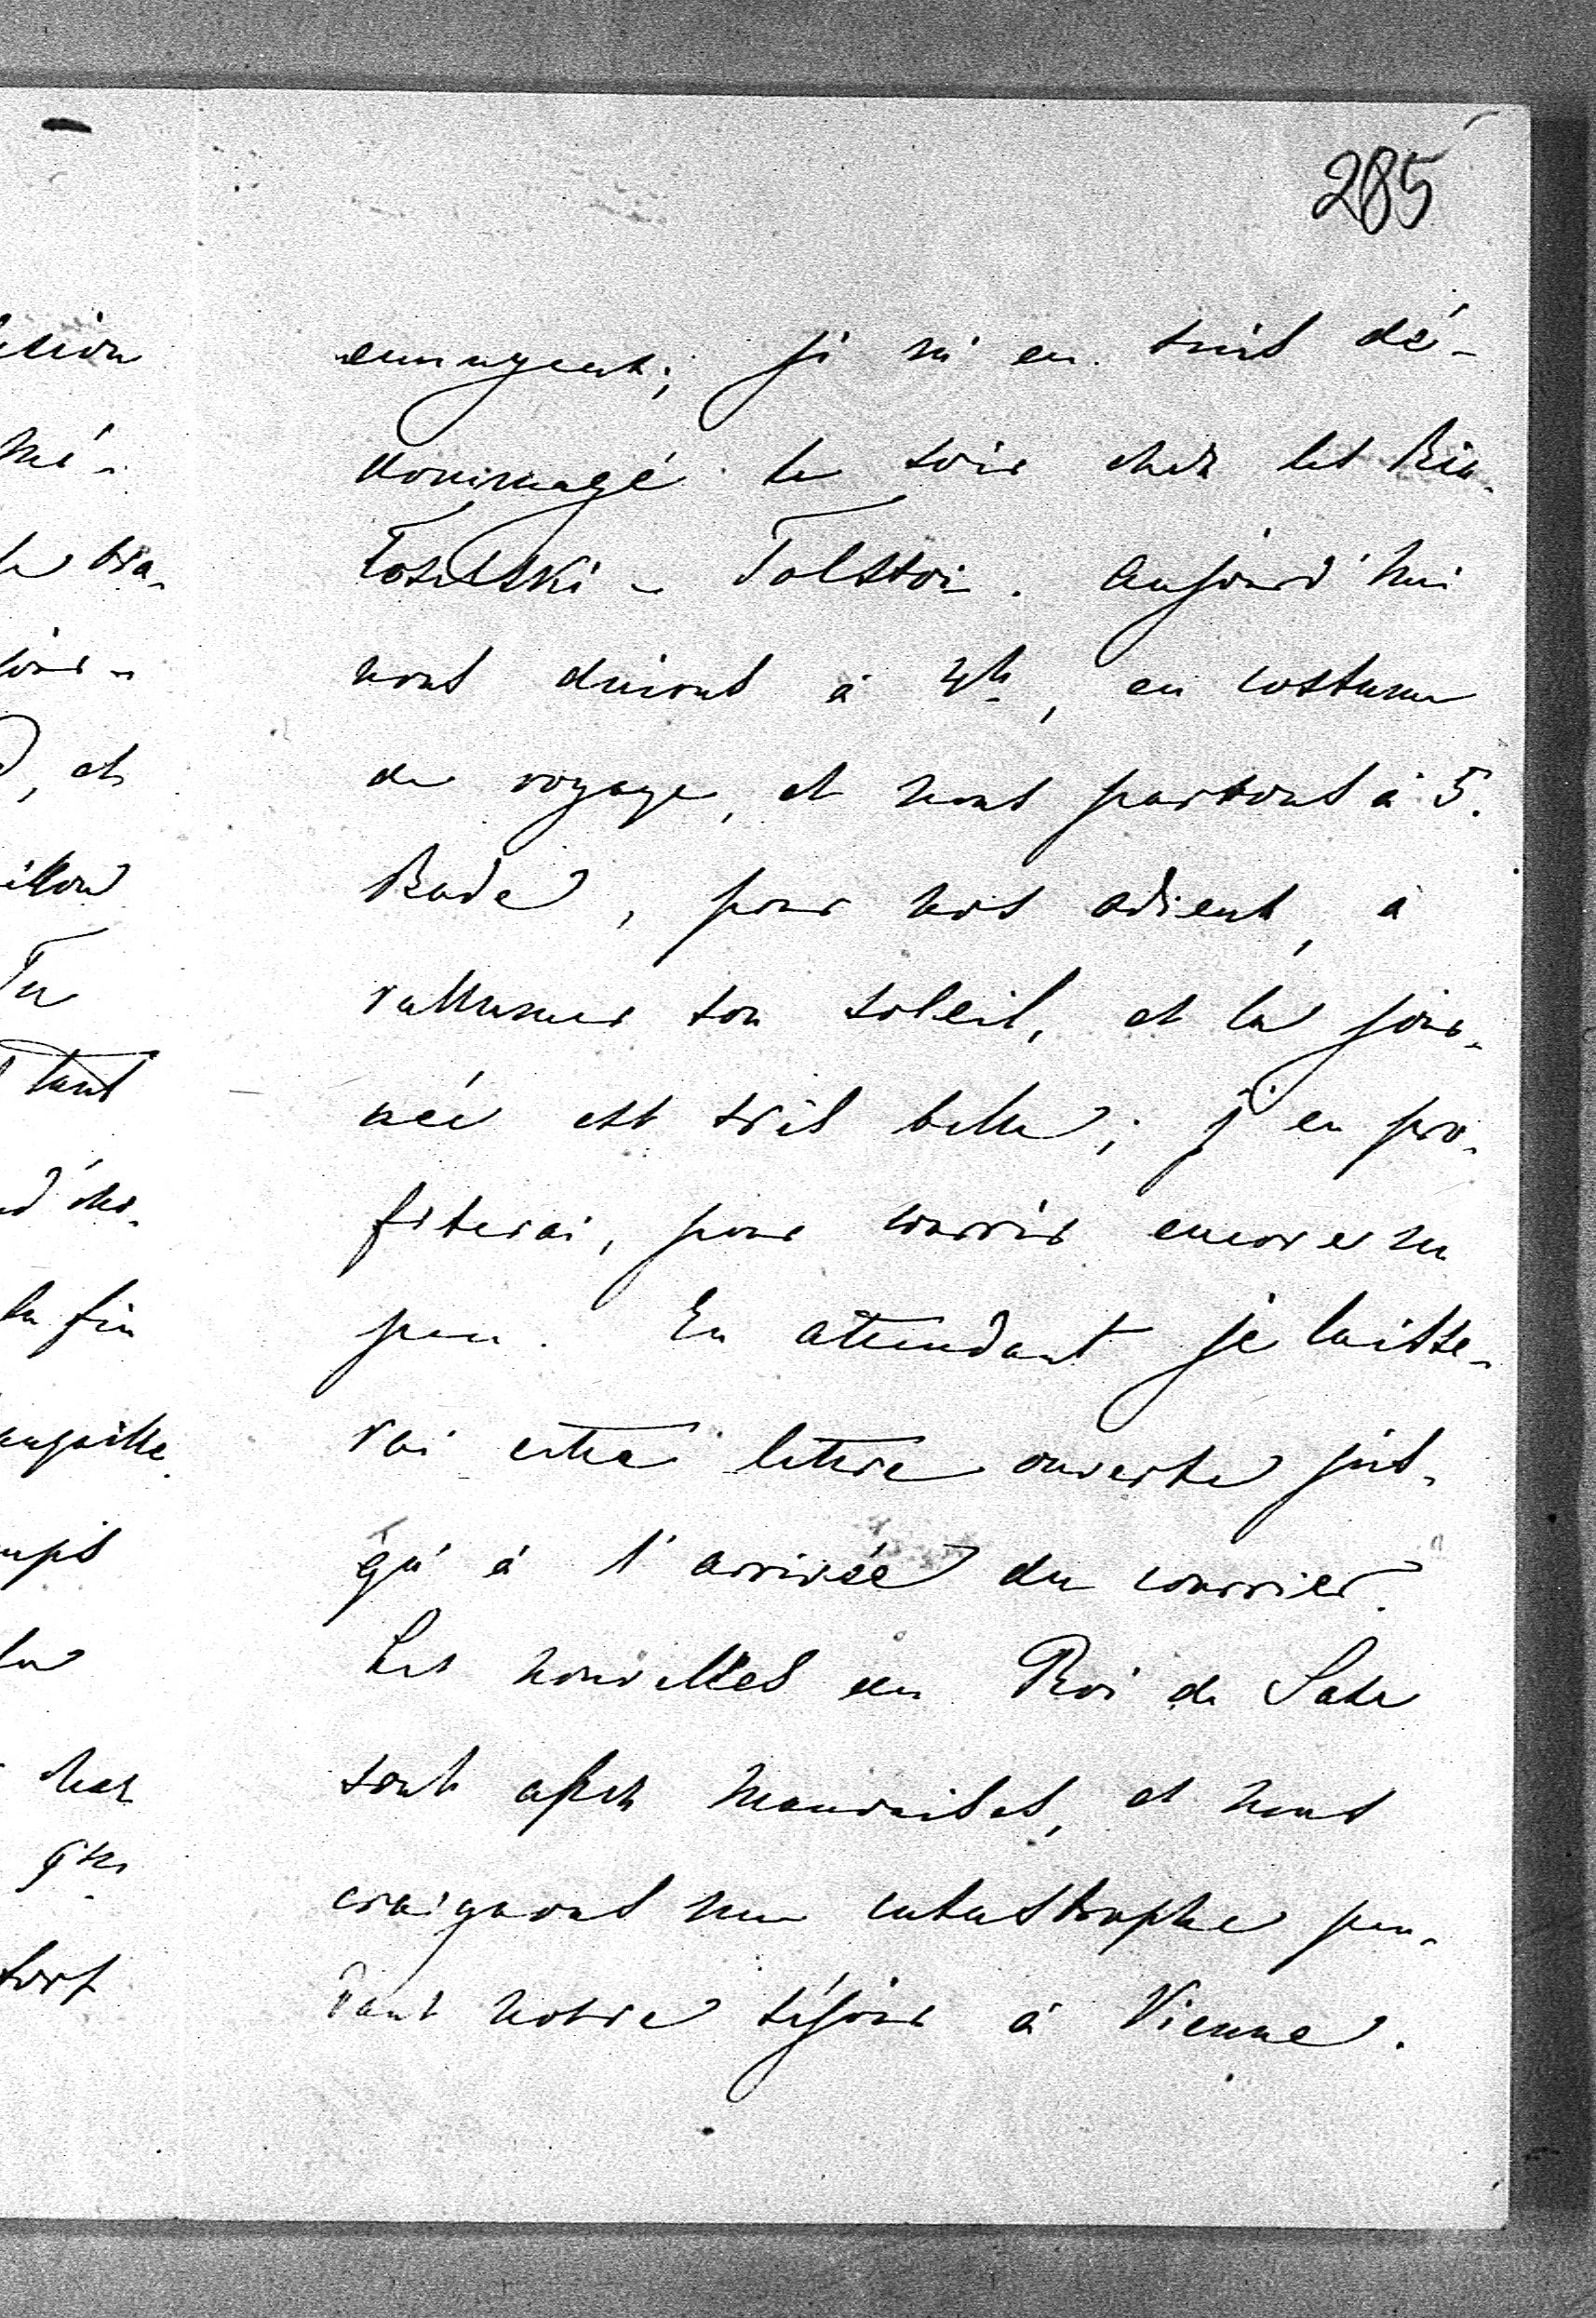 285
ennuyeux; je m'en suis dé-
dommagé le soir chez les Bia-
Tolstoi. Aujourd'hui
nous dinons à 4h, en costume
de voyage, et nous partons à 5.
Bade, pour nos adieux, a
rallumé son soleil, et la jour-
née est très belle; j'en pro-
fiterai, pour courrir encore un
peu. En attendant je laisse-
rai cette lettre ouverte jus-
qu'à l'arrivée du courrier.
Les nouvelles du Roi de Saxe
sont assez mauvaises, et nous
craignons une catastrophe pen-
dant notre séjour à Vienne.